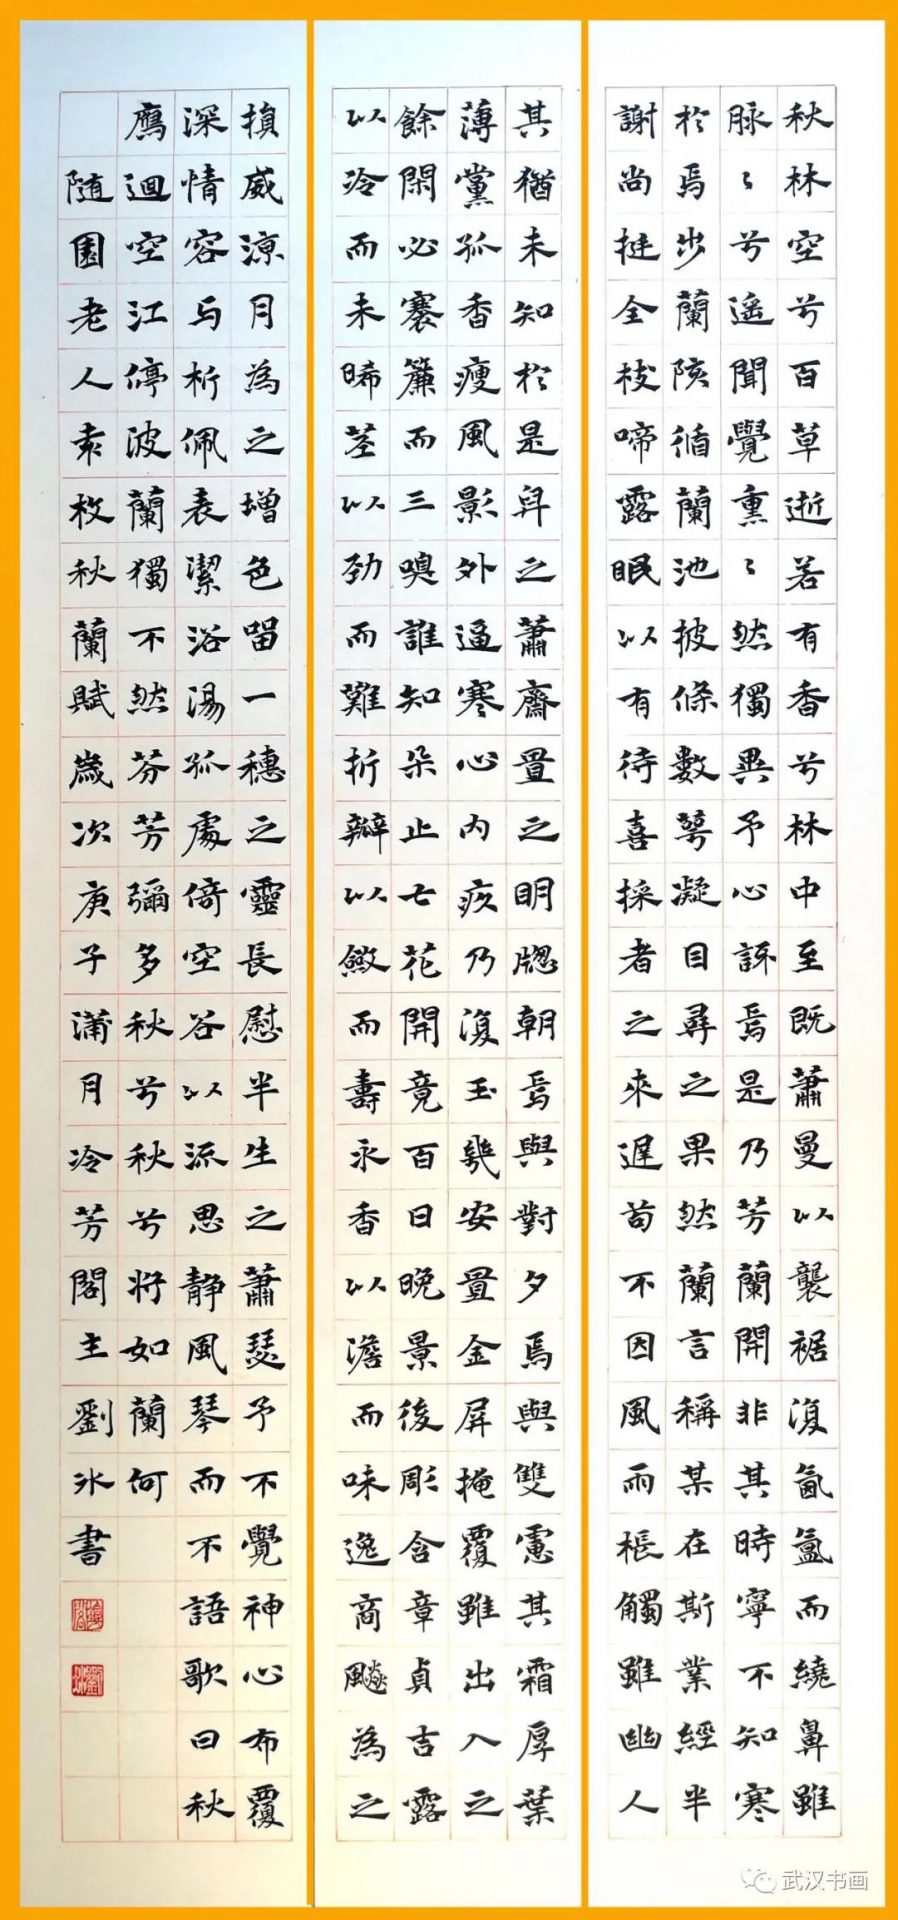 秋林空兮百草逝若有香兮林中至既蕭曼以襲裾復氤氳而繞鼻雖
脉〻兮遥聞覺熏〻然獨異予心訝焉是乃芳蘭開非其時寧不知寒
於焉步蘭陔循蘭池披條數萼凝目尋之果然蘭言稱某在斯業經半
謝尚挺全枝啼露眠以有待喜採者之來遲苟不因風雨棖觸雖幽人
其猶未知於是舁之蕭齋置之明牕朝焉與對夕焉與雙慮其霜厚葉
薄黨孤香瘦風影外逼寒心内疚乃復玉几安置金屏掩覆雖出入之
餘閑必褰簾而三嗅誰知朵止七花開竟百日晚景後彫含章貞吉露
以冷而未晞莖以勁而難折瓣以斂而壽永香以澹而味逸商飈為之
損威涼月為之增色留一穗之靈長慰半生之蕭瑟予不覺神心布覆
深情容与析佩表潔浴湯孤處倚空谷以流思静風琴而不語歌曰秋
鴈迴空江停波蘭獨不然芬芳彌多秋兮秋兮將如蘭何
随園老人袁枚秋蘭賦歲次庚子蒲月冷芳閣主劉冰書
武汉书画